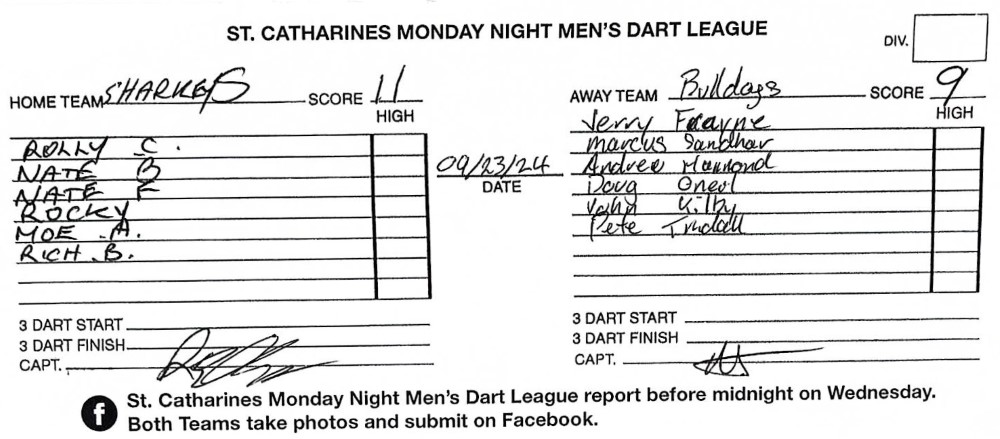 ST. CATHARINES MONDAY NIGHT MEN'S DART LEAGUE
DIV.
HOME TEAM SHARKEYS SCORE 11
HIGH
ROLLY C.
NATE B
NATE F
ROCKY
MOE .A.
RICH .B.
09/23/24
DATE
AWAY TEAM Bulldogs SCORE 9
HIGH
Jerry
Marcus Sandhar
Andrew Hammond
Doug
Kilby
Pete
3 DART START
3 DART FINISH
CAPT.
3 DART START
3 DART FINISH
CAPT.
f St. Catharines Monday Night Men's Dart League report before midnight on Wednesday.
Both Teams take photos and submit on Facebook.